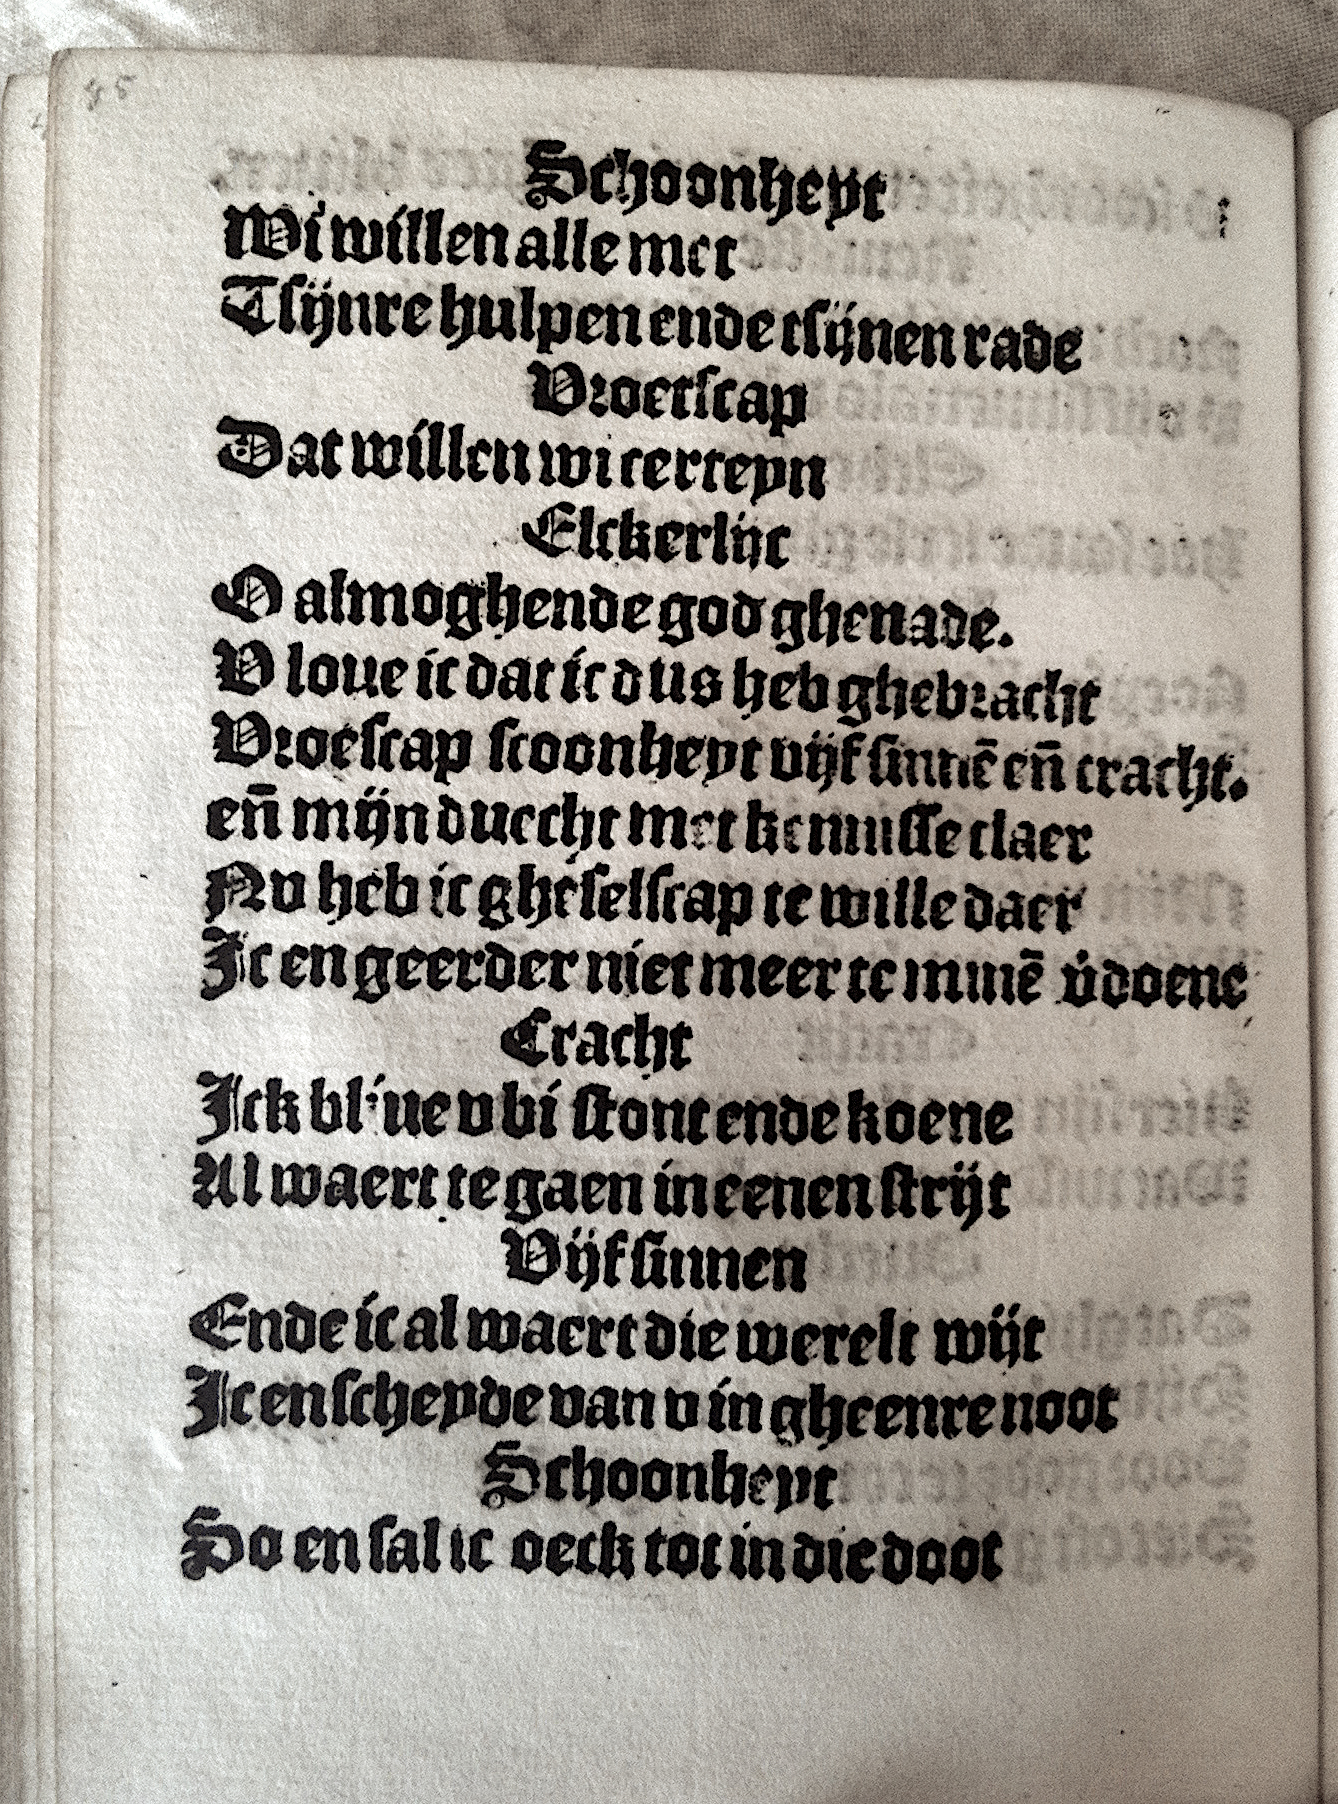 85
Schoonheyt
Wi willen alle met
Tsijnre hulpen ende tsijnen rade
Vroetscap
Dat willen wi certeyn
Elckerlijc
O almoghende god ghenade.
V loue ic dat ic dus heb ghebracht
Vroescap scoonheyt vijf sinnē en̄ cracht.
en̄ mijn duecht met kennisse claer
Nv heb ic gheselscap te wille daer
Ic en geerder niet meer te minē v̇doene
Cracht
Ick bliue v bi stont ende koene
Al waert te gaen in eenen strijt
Vijf sinnen
Ende ic al waert die werelt wijt
Ic en scheyde van v in gheenre noot
Schoonheyt
So en sal ic oeck tot in die doot